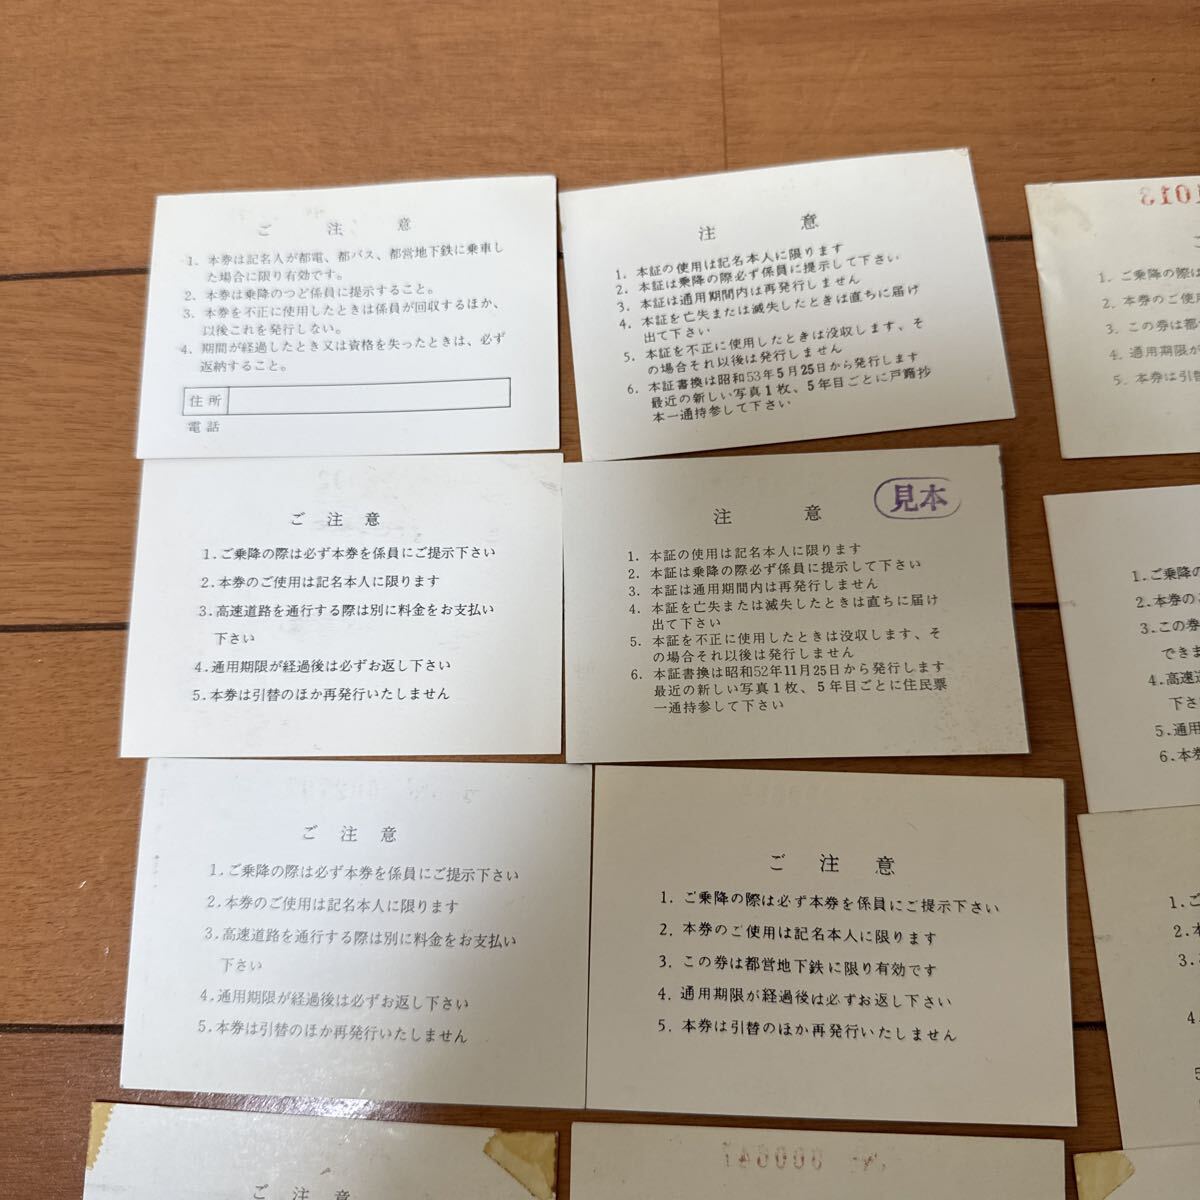 ご注意
1. 本券は記名人が都電、都バス、都営地下鉄に乗車し
た場合に限り有効です。
2. 本券は乗降のつど係員に提示すること。
3. 本券を不正に使用したときは係員が回収するほか、
以後これを発行しない。
4. 期間が経過したとき又は資格を失ったときは、必ず
返納すること。
住所
電話
注意
1. 本証の使用は記名本人に限ります
2. 本証は乗降の際必ず係員に提示して下さい
3. 本証は通用期間内は再発行しません
4. 本証を亡失または滅失したときは直ちに届け
出て下さい
5. 本証を不正に使用したときは没収します、そ
の場合それ以後は発行しません
6. 本証書換は昭和53年5月25日から発行します
最近の新しい写真1枚、5年目ごとに戸籍抄
本一通持参して下さい
1. ご乗降の際は
2. 本券のご使用
3. この券は都
4. 通用期限が
5. 本券は引替
ご注意
1. ご乗降の際は必ず本券を係員にご提示下さい
2. 本券のご使用は記名本人に限ります
3. 高速道路を通行する際は別に料金をお支払い
下さい
4. 通用期限が経過後は必ずお返し下さい
5. 本券は引替のほか再発行いたしません
注意
見本
1. 本証の使用は記名本人に限ります
2. 本証は乗降の際必ず係員に提示して下さい
3. 本証は通用期間内は再発行しません
4. 本証を亡失または滅失したときは直ちに届け
出て下さい
5. 本証を不正に使用したときは没収します、そ
の場合それ以後は発行しません
6. 本証書換は昭和52年11月25日から発行します
最近の新しい写真1枚、5年目ごとに住民票
一通持参して下さい
1. ご乗降の
2. 本券のご
3. この券
できま
4. 高速道
下さ
5. 通用
6. 本券
ご注意
1. ご乗降の際は必ず本券を係員にご提示下さい
2. 本券のご使用は記名本人に限ります
3. 高速道路を通行する際は別に料金をお支払い
下さい
4. 通用期限が経過後は必ずお返し下さい
5. 本券は引替のほか再発行いたしません
ご注意
1. ご乗降の際は必ず本券を係員にご提示下さい
2. 本券のご使用は記名本人に限ります
3. この券は都営地下鉄に限り有効です
4. 通用期限が経過後は必ずお返し下さい
5. 本券は引替のほか再発行いたしません
1. ご
2. 本
3.
4.
5
ご注意